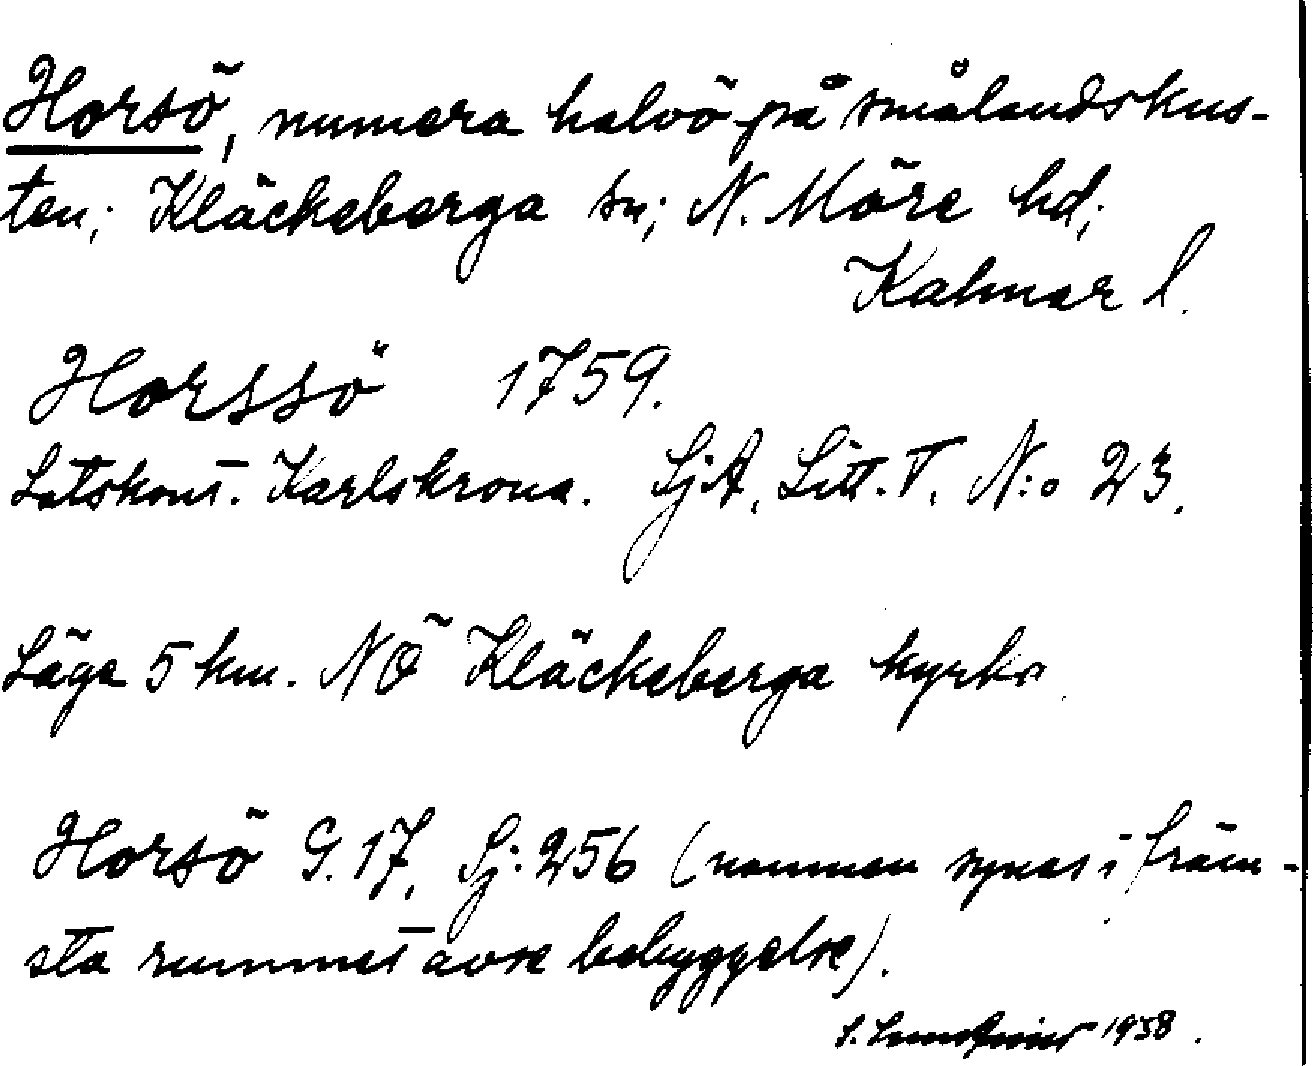 Horsö, numera halvö på smålandskus-
ten; Kläckeberga sn; N. Möre hd;
Kalmar l.
Horssö 1759.
Lotskont. Karlskrona. SjA, Litt. T. N:o 23.
Läge 5 km. NÖ Kläckeberga kyrka.
Horsö G. 17, Sj. 256 (namnen synas i främ-
sta rummet avse bebyggelse).
1938.